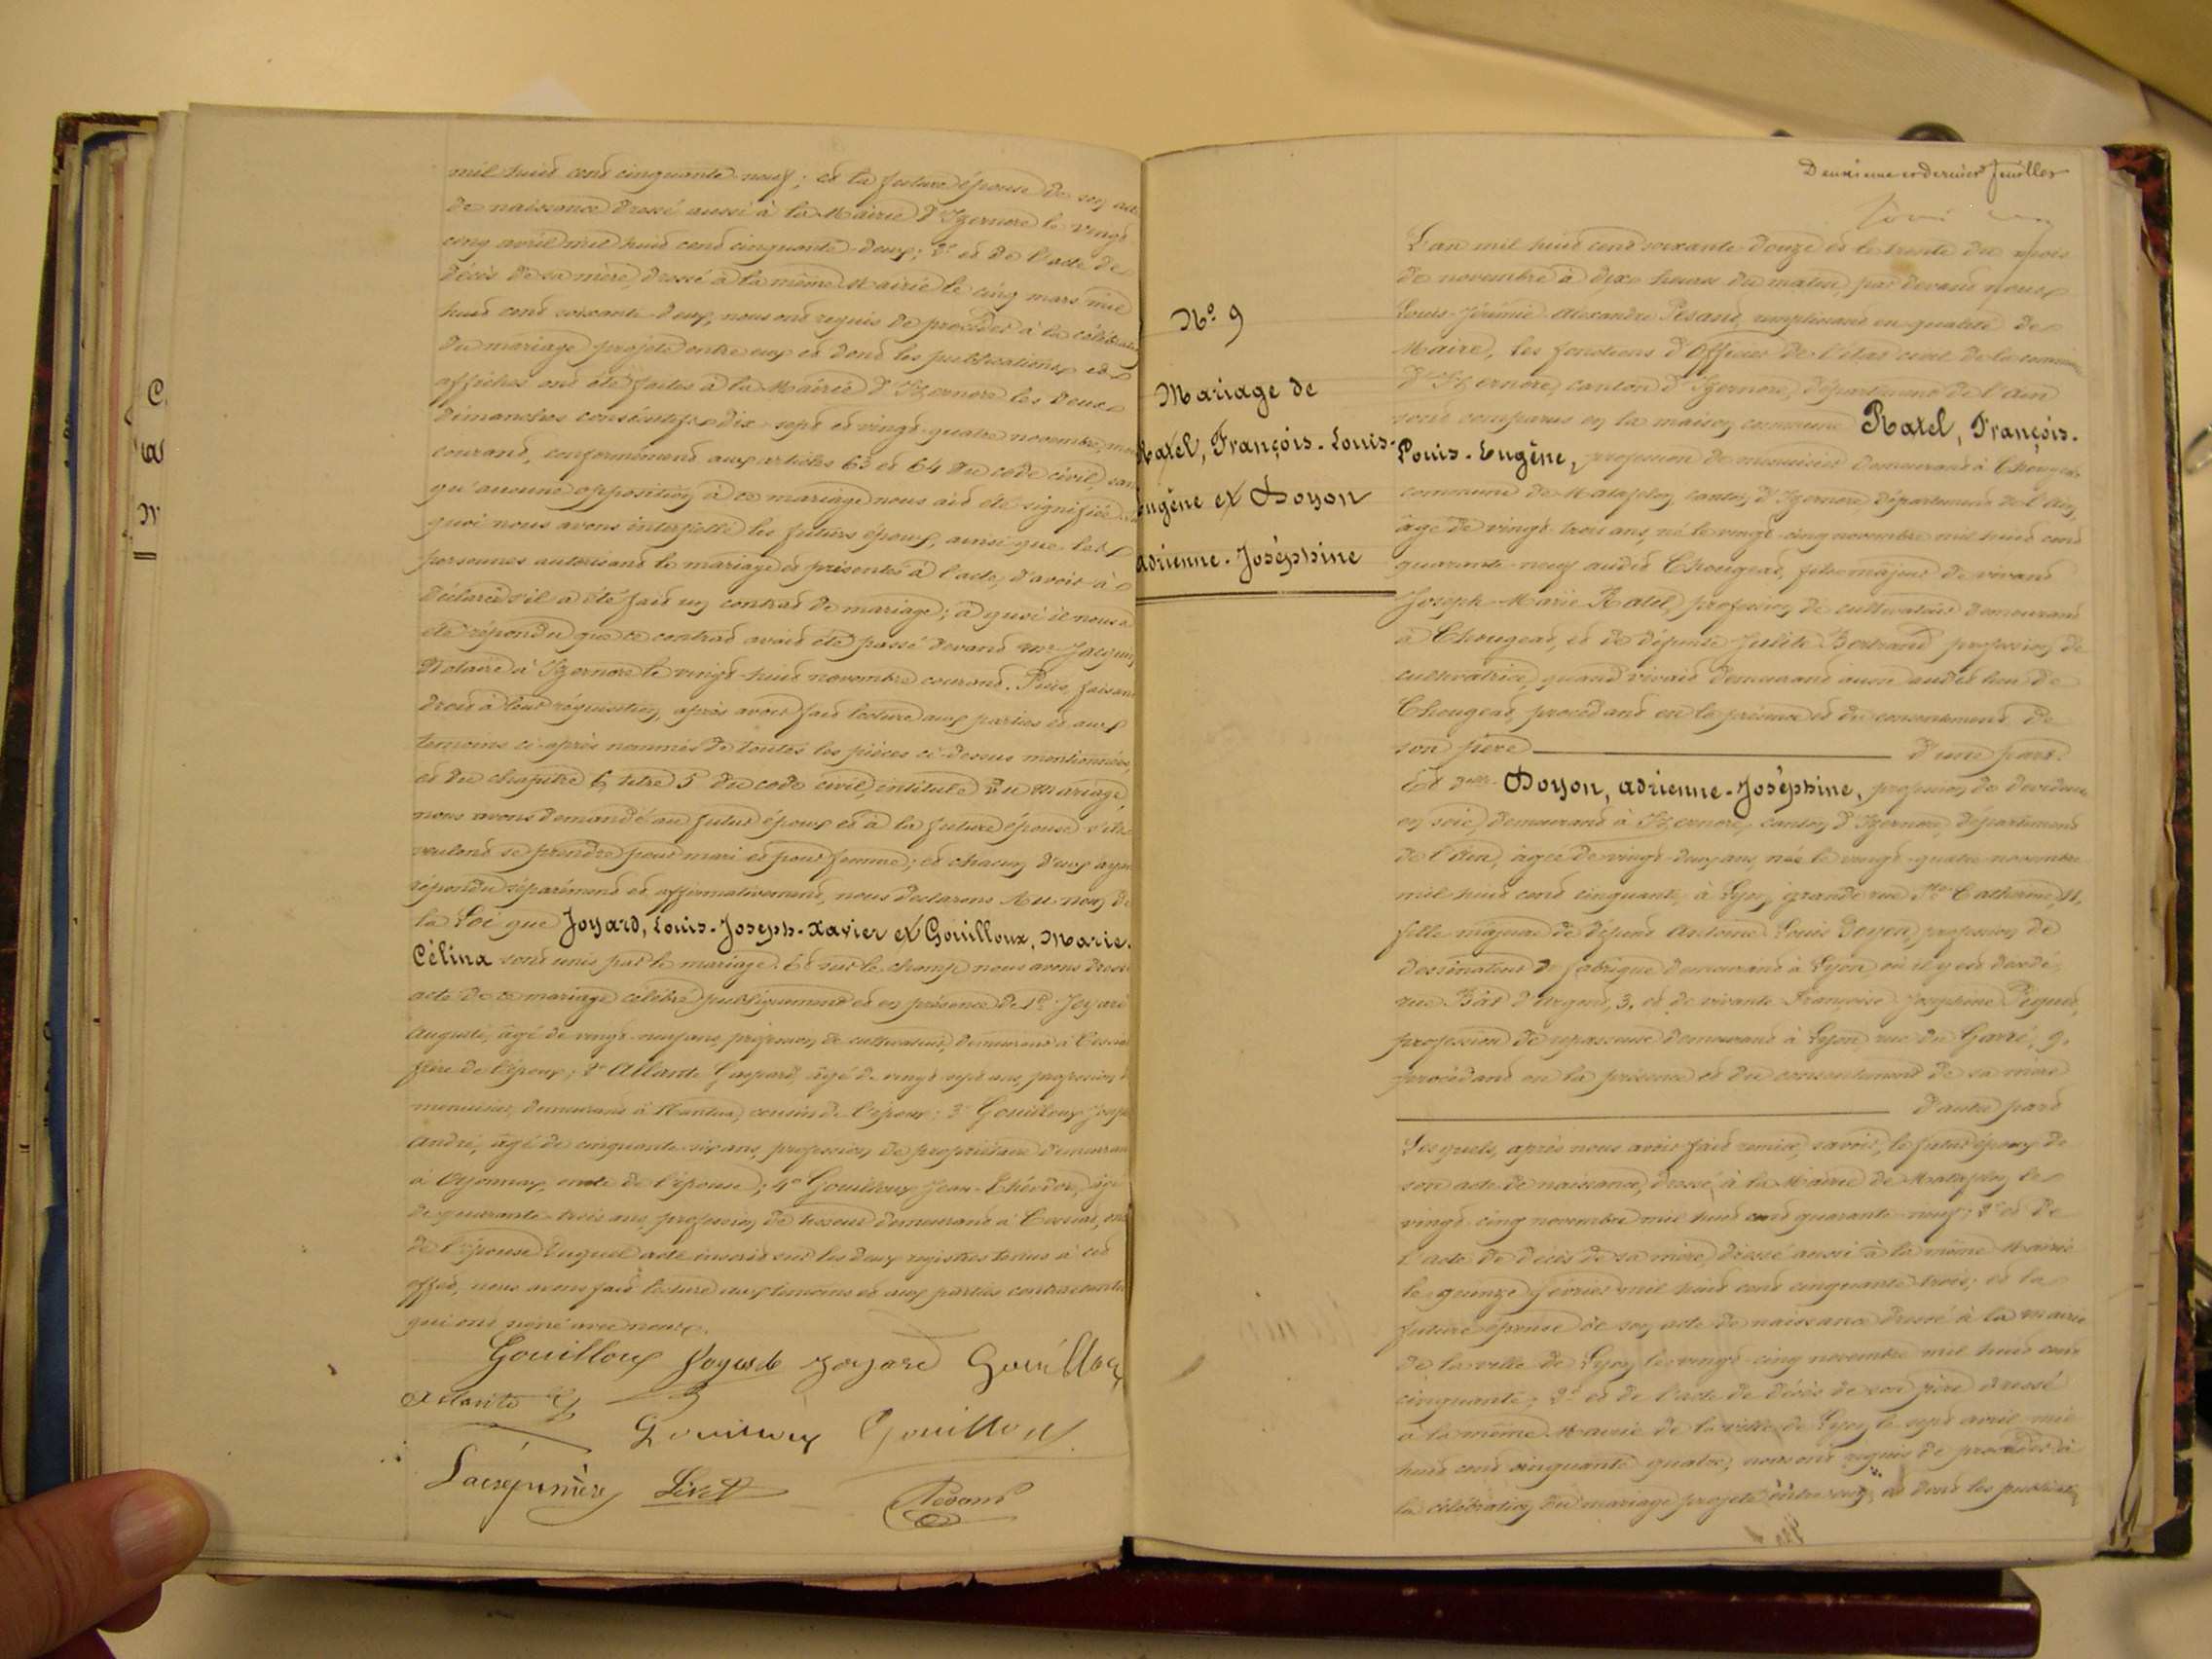 mil huit cent cinquante neuf ; et la future épouse de son acte
de naissance dressé aussi à la Mairie d'Izernore le vingt
cinq avril mil huit cent cinquante-deux ; 2° et de l'acte de
décès de sa mère, dressé à la même Mairie le cinq mars mil
huit cent soixante-deux, nous ont requis de procéder à la célébration
du mariage projeté entre eux et dont les publications et
affiches ont été faites à la Mairie d'Izernore les deux
dimanches consécutifs dix-sept et vingt-quatre novembre, mois
courant, conformément aux articles 63 et 64 du code civil, sans
qu'aucune opposition à ce mariage nous ait été signifiée
quoi nous avons interpellé les futurs époux, ainsi que les
personnes autorisant le mariage et présentes à l'acte, d'avoir à
déclarer s'il a été fait un contrat de mariage ; à quoi il nous a
été répondu que ce contrat avait été passé devant Me Jacquin
Notaire à Izernore le vingt-huit novembre courant. Puis, faisant
droit à leur réquisition, après avoir fait lecture aux parties et aux
témoins ci-après nommés de toutes les pièces ci-dessus mentionnées,
et du chapitre 6 titre 5 du code civil, intitulé du Mariage,
nous avons demandé au futur époux et à la future épouse s'ils
veulent se prendre pour mari et pour femme ; et chacun d'eux ayant
répondu séparément et affirmativement, nous déclarons Au nom de
la Loi que Joyard, Louis-Joseph-Xavier et Gouilloux, Marie-
Célina sont unis par le mariage. Et sur le champ nous avons dressé
acte de ce mariage célébré publiquement et en présence de 1° Joyard
Auguste, âgé de vingt-neuf ans, profession de cultivateur, demeurant à
frère de l'époux ; 2° Allante Gaspard, âgé de vingt-sept ans, profession de
menuisier, demeurant à Nantua, cousin de l'époux ; 3° Gouilloux Joseph
André, âgé de cinquante-six ans, profession de propriétaire demeurant
à Oyonnax, oncle de l'épouse ; 4° Gouilloux Jean-Théodore, âgé
de quarante-trois ans, profession de tisseur demeurant à
de l'épouse. Duquel acte inscrit sur les deux registres tenus à cet
effet, nous avons fait lecture aux témoins et aux parties contractantes
qui ont signé avec nous.
Gouilloux Joyard Gouilloux
Allante G
Gouilloux Gouilloux
Livet Pesant
Deuxième et dernier feuillet
N° 9
Mariage de
Ratel, François-Louis-
Eugène et Doyon
Adrienne-Joséphine
L'an mil huit cent soixante-douze et le trente du mois
de novembre à dix heures du matin, par devant nous
Louis-Jérémie-Alexandre Pesant, remplissant en qualité de
Maire, les fonctions d'Officier de l'état civil de la commune
d'Izernore, canton d'Izernore, département de l'Ain
sont comparus en la maison commune Ratel, François-
Louis-Eugène, profession de menuisier demeurant à Chougeat
commune de Matafelon, canton d'Izernore département de l'Ain,
âgé de vingt-trois ans, né le vingt-cinq novembre mil huit cent
quarante-neuf audit Chougeat, fils majeur de vivant
Joseph-Marie Ratel, profession de cultivateur demeurant
à Chougeat, et de défunte Julite Bertrand profession de
cultivatrice, quand vivait demeurant aussi audit lieu de
Chougeat, procédant en la présence et du consentement de
son père d'une part.
Et Dlle Doyon, Adrienne-Joséphine, profession de dévideuse
en soie, demeurant à Izernore, canton d'Izernore, département
de l'Ain, âgée de vingt-deux ans, née le vingt-quatre novembre
mil huit cent cinquante, à Lyon, grande rue Ste Catherine, 11,
fille majeure de défunt Antoine Louis Doyon, profession de
dessinateur de fabrique demeurant à Lyon où il y est décédé,
rue Bât d'Argent, 3, et de vivante Françoise Joséphine
profession de repasseuse demeurant à Lyon, rue du Garet, 9,
procédant en la présence et du consentement de sa mère
d'autre part
Lesquels, après nous avoir fait remise, savoir, le futur époux de
son acte de naissance, dressé, à la Mairie de Matafelon, le
vingt-cinq novembre mil huit cent quarante-neuf ; 2° et de
l'acte de décès de sa mère, dressé aussi à la même Mairie
le quinze février mil huit cent cinquante-trois ; et la
future épouse de son acte de naissance dressé à la Mairie
de la ville de Lyon le vingt-cinq novembre mil huit cent
cinquante ; 2° et de l'acte de décès de son père dressé
à la même Mairie de la ville de Lyon le sept avril mil
huit cent cinquante-quatre, nous ont requis de procéder à
la célébration du mariage projeté entre eux, et dont les publications